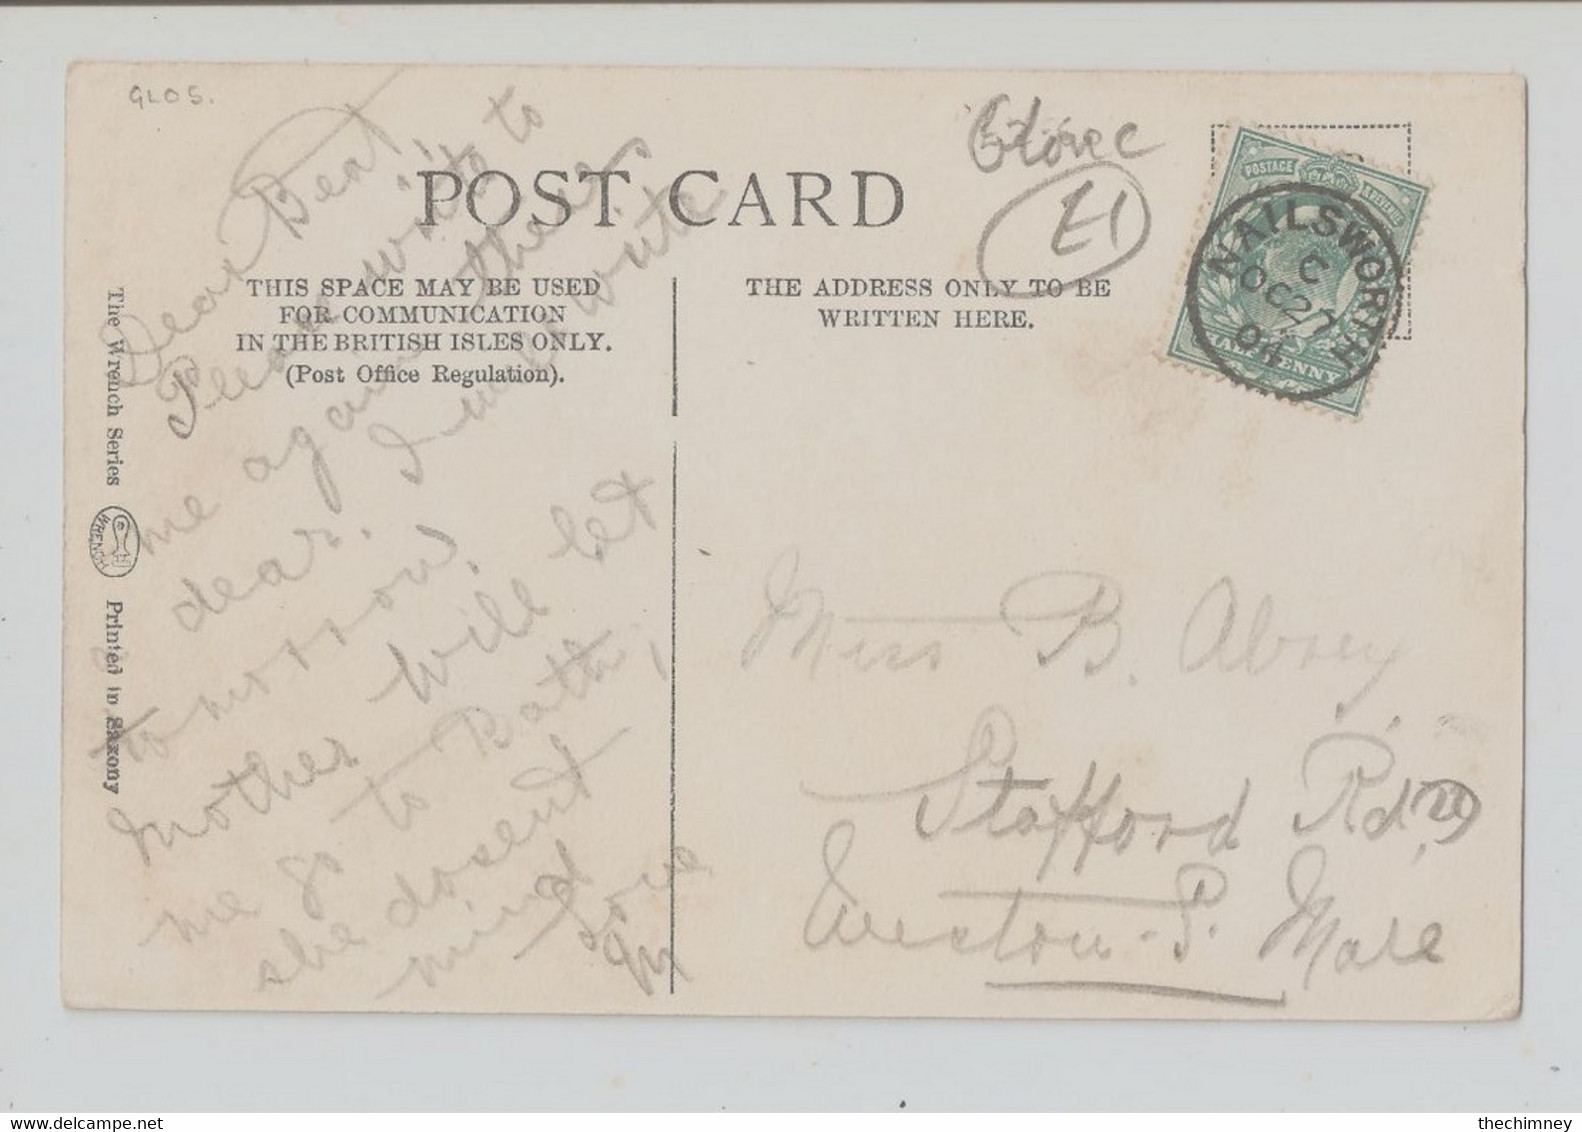 GLOS.
Glouc
E1
POST CARD
THIS SPACE MAY BE USED
FOR COMMUNICATION
IN THE BRITISH ISLES ONLY.
(Post Office Regulation).
THE ADDRESS ONLY TO BE
WRITTEN HERE.
POSTAGE REVENUE
HALFPENNY
NAILSWORTH
C
OC 27
04
The Wrench Series
WRENCH
Printed in Saxony
Dear Beat
Please write to
me again there
dear. I will write
tomorrow.
Mother will let
me go to Bath,
she dosent
mind
Love
M
Miss B. Abrey
Stafford Rd
Weston-S. Mare
thechimney